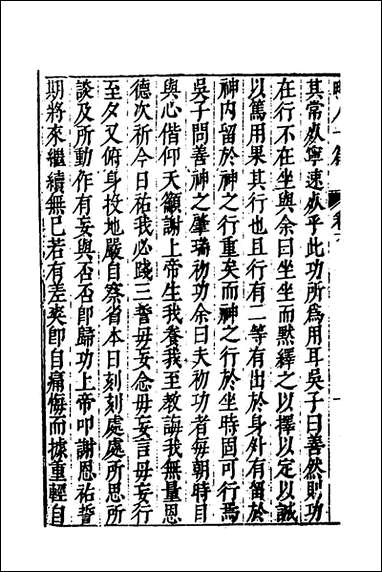 畸人十篇 卷下
其常歟寧速歟乎此功所為用耳吳子曰善然則功
在行不在坐與余曰坐坐而默繹之以擇以定以誠
以篤用果其行也且行有二等有出於身外有留於
神內留於神之行重矣而神之行於坐時固可行焉
吳子問善神之肇瑞初功余曰夫初功者每朝時目
與心偕仰天籲謝上帝生我養我至教誨我無量恩
德次祈今日祐我必踐三誓毋妄念毋妄言毋妄行
至夕又俯身投地嚴自察省本日刻刻處處所思所
談及所動作有妄與否否即歸功上帝叩謝恩祐誓
期將來繼續無已若有差爽即自痛悔而據重輕自